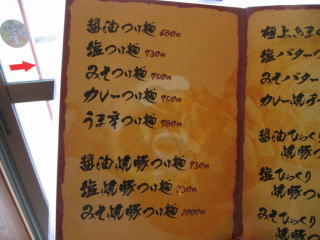 醤油つけ麺 680円
塩つけ麺 730円
みそつけ麺 750円
カレーつけ麺 750円
うま辛つけ麺 780円
醤油焼豚つけ麺 930円
塩焼豚つけ麺
みそ焼豚つけ麺 1000円
塩バター
みそバター
カレー焼
醤油びっくり
焼豚つ
塩びっくり
焼豚つ
みそびっくり
焼豚つ